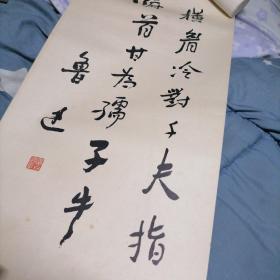 横眉冷對千夫指
俯首甘为孺子牛
鲁迅